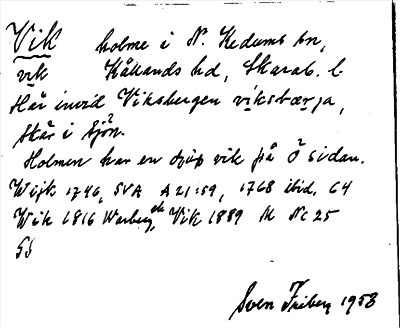 Vik holme i N. Kedums sn,
vik Kållands hd, Skarab. l
Här invid Viksbergen viksbærja,
Skär i sjön.
Holmen har en djup vik på Ö sidan.
Wijk 1746, SVA A 21:59, 1768 ibid. 64
Wik 1816 Warberg, Vik 1889 M Nc 25
Sven Friberg 1958